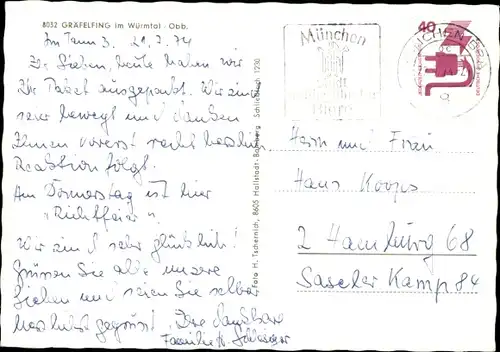 8032 GRÄFELFING im Würmtal - Obb.
Im Tann 3. 21.7.74
Ihr Lieben, heute haben wir
Ihr Paket ausgepackt. Wir sind
sehr bewegt und danken
Ihnen vorerst recht herzlich.
Reaktion folgt.
Am Donnerstag ist hier
"Richtfeier".
Wir sind sehr glücklich!
Grüssen Sie alle unsere
Lieben und seien Sie selbst
herzlichst gegrüsst. Ihre dankbare
Familie
Foto H. Tschernich, 8605 Hallstadt-Bamberg Schließfach 1230
München
40
MÜNCHEN
Herrn und Frau
Hans Koops
2 Hamburg 68
Saseler Kamp 84